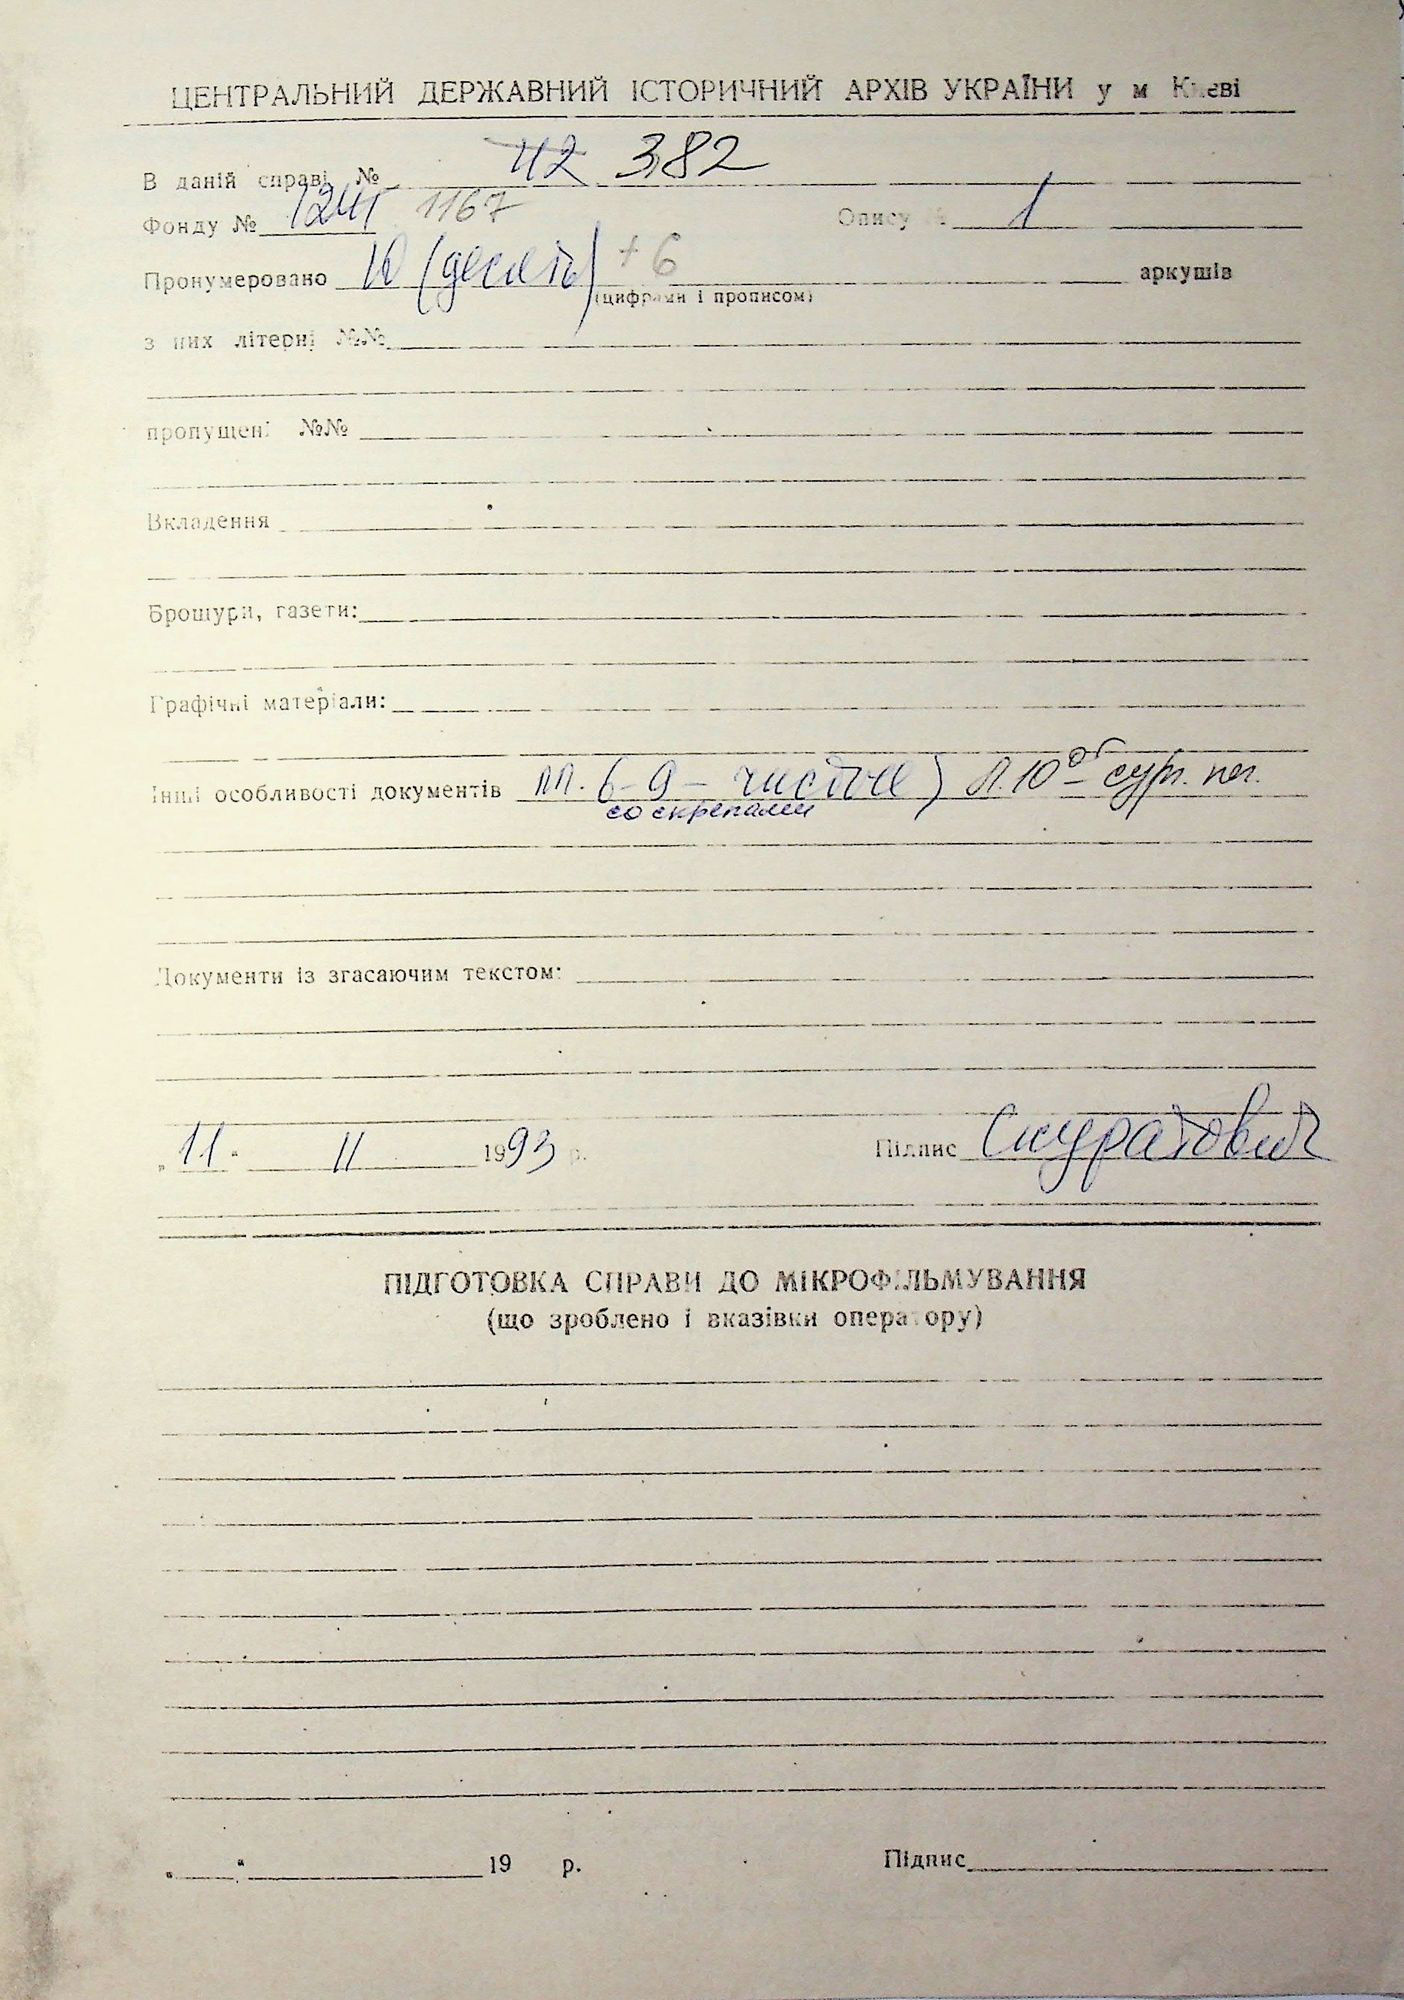 ЦЕНТРАЛЬНИЙ ДЕРЖАВНИЙ ІСТОРИЧНИЙ АРХІВ УКРАЇНИ у м Києві
В даній справі № 42 382
Фонду № 1167 Опису № 1
Пронумеровано 10 (десять) +6 аркушів
(цифрами і прописом)
з них літерні №№
пропущені №№
Вкладення
Брошури, газети:
Графічні матеріали:
Інші особливості документів лл. 6-9 - чистые, л. 10 об - сург. печ.
со скрепами
Документи із згасаючим текстом:
„11“ II 1993 р. Підпис Скуратович
ПІДГОТОВКА СПРАВИ ДО МІКРОФІЛЬМУВАННЯ
(що зроблено і вказівки оператору)
„ “ 19 р. Підпис